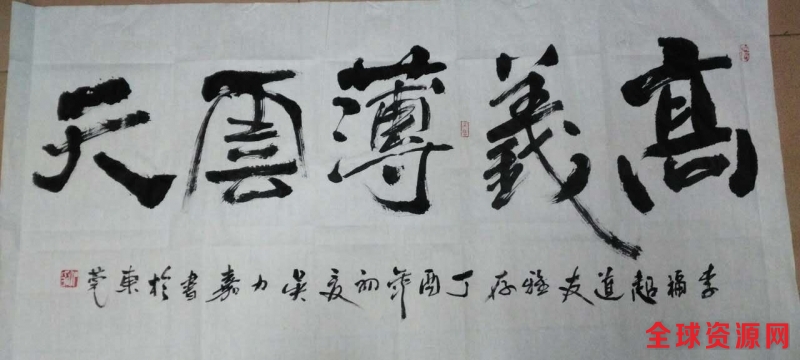 高義薄雲天
李福超道友雅存丁酉年初夏吴力嘉書於東莞
全球资源网